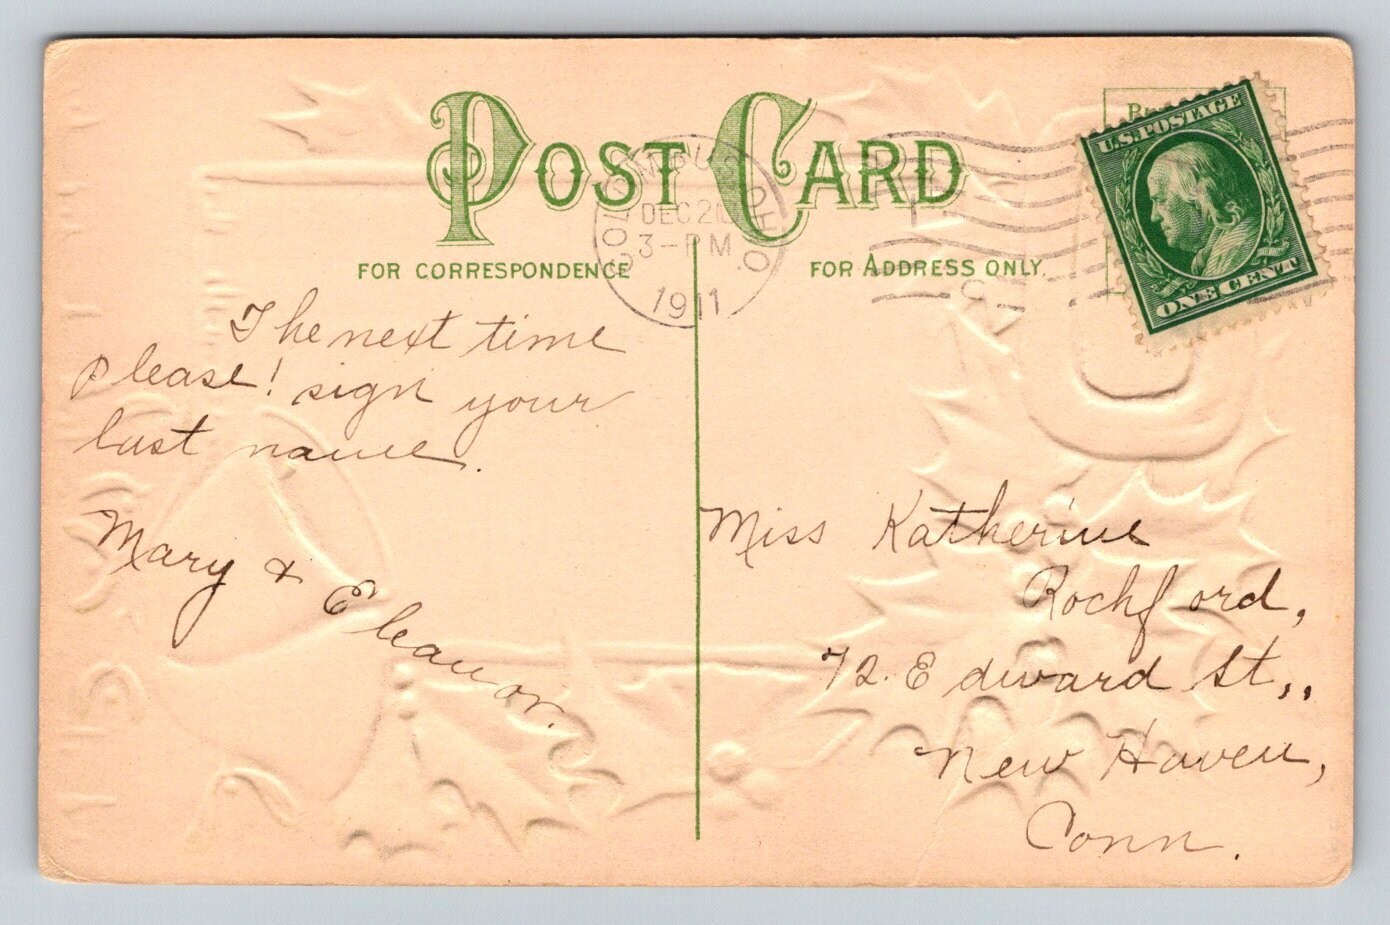 POST CARD
FOR CORRESPONDENCE
FOR ADDRESS ONLY.
U.S. POSTAGE
ONE CENT
DEC 20
3-PM
1911
O.
The next time
please! sign your
last name.
Mary & Eleanor.
Miss Katherine
Rochford,
72. Edward St.,
New Haven,
Conn.